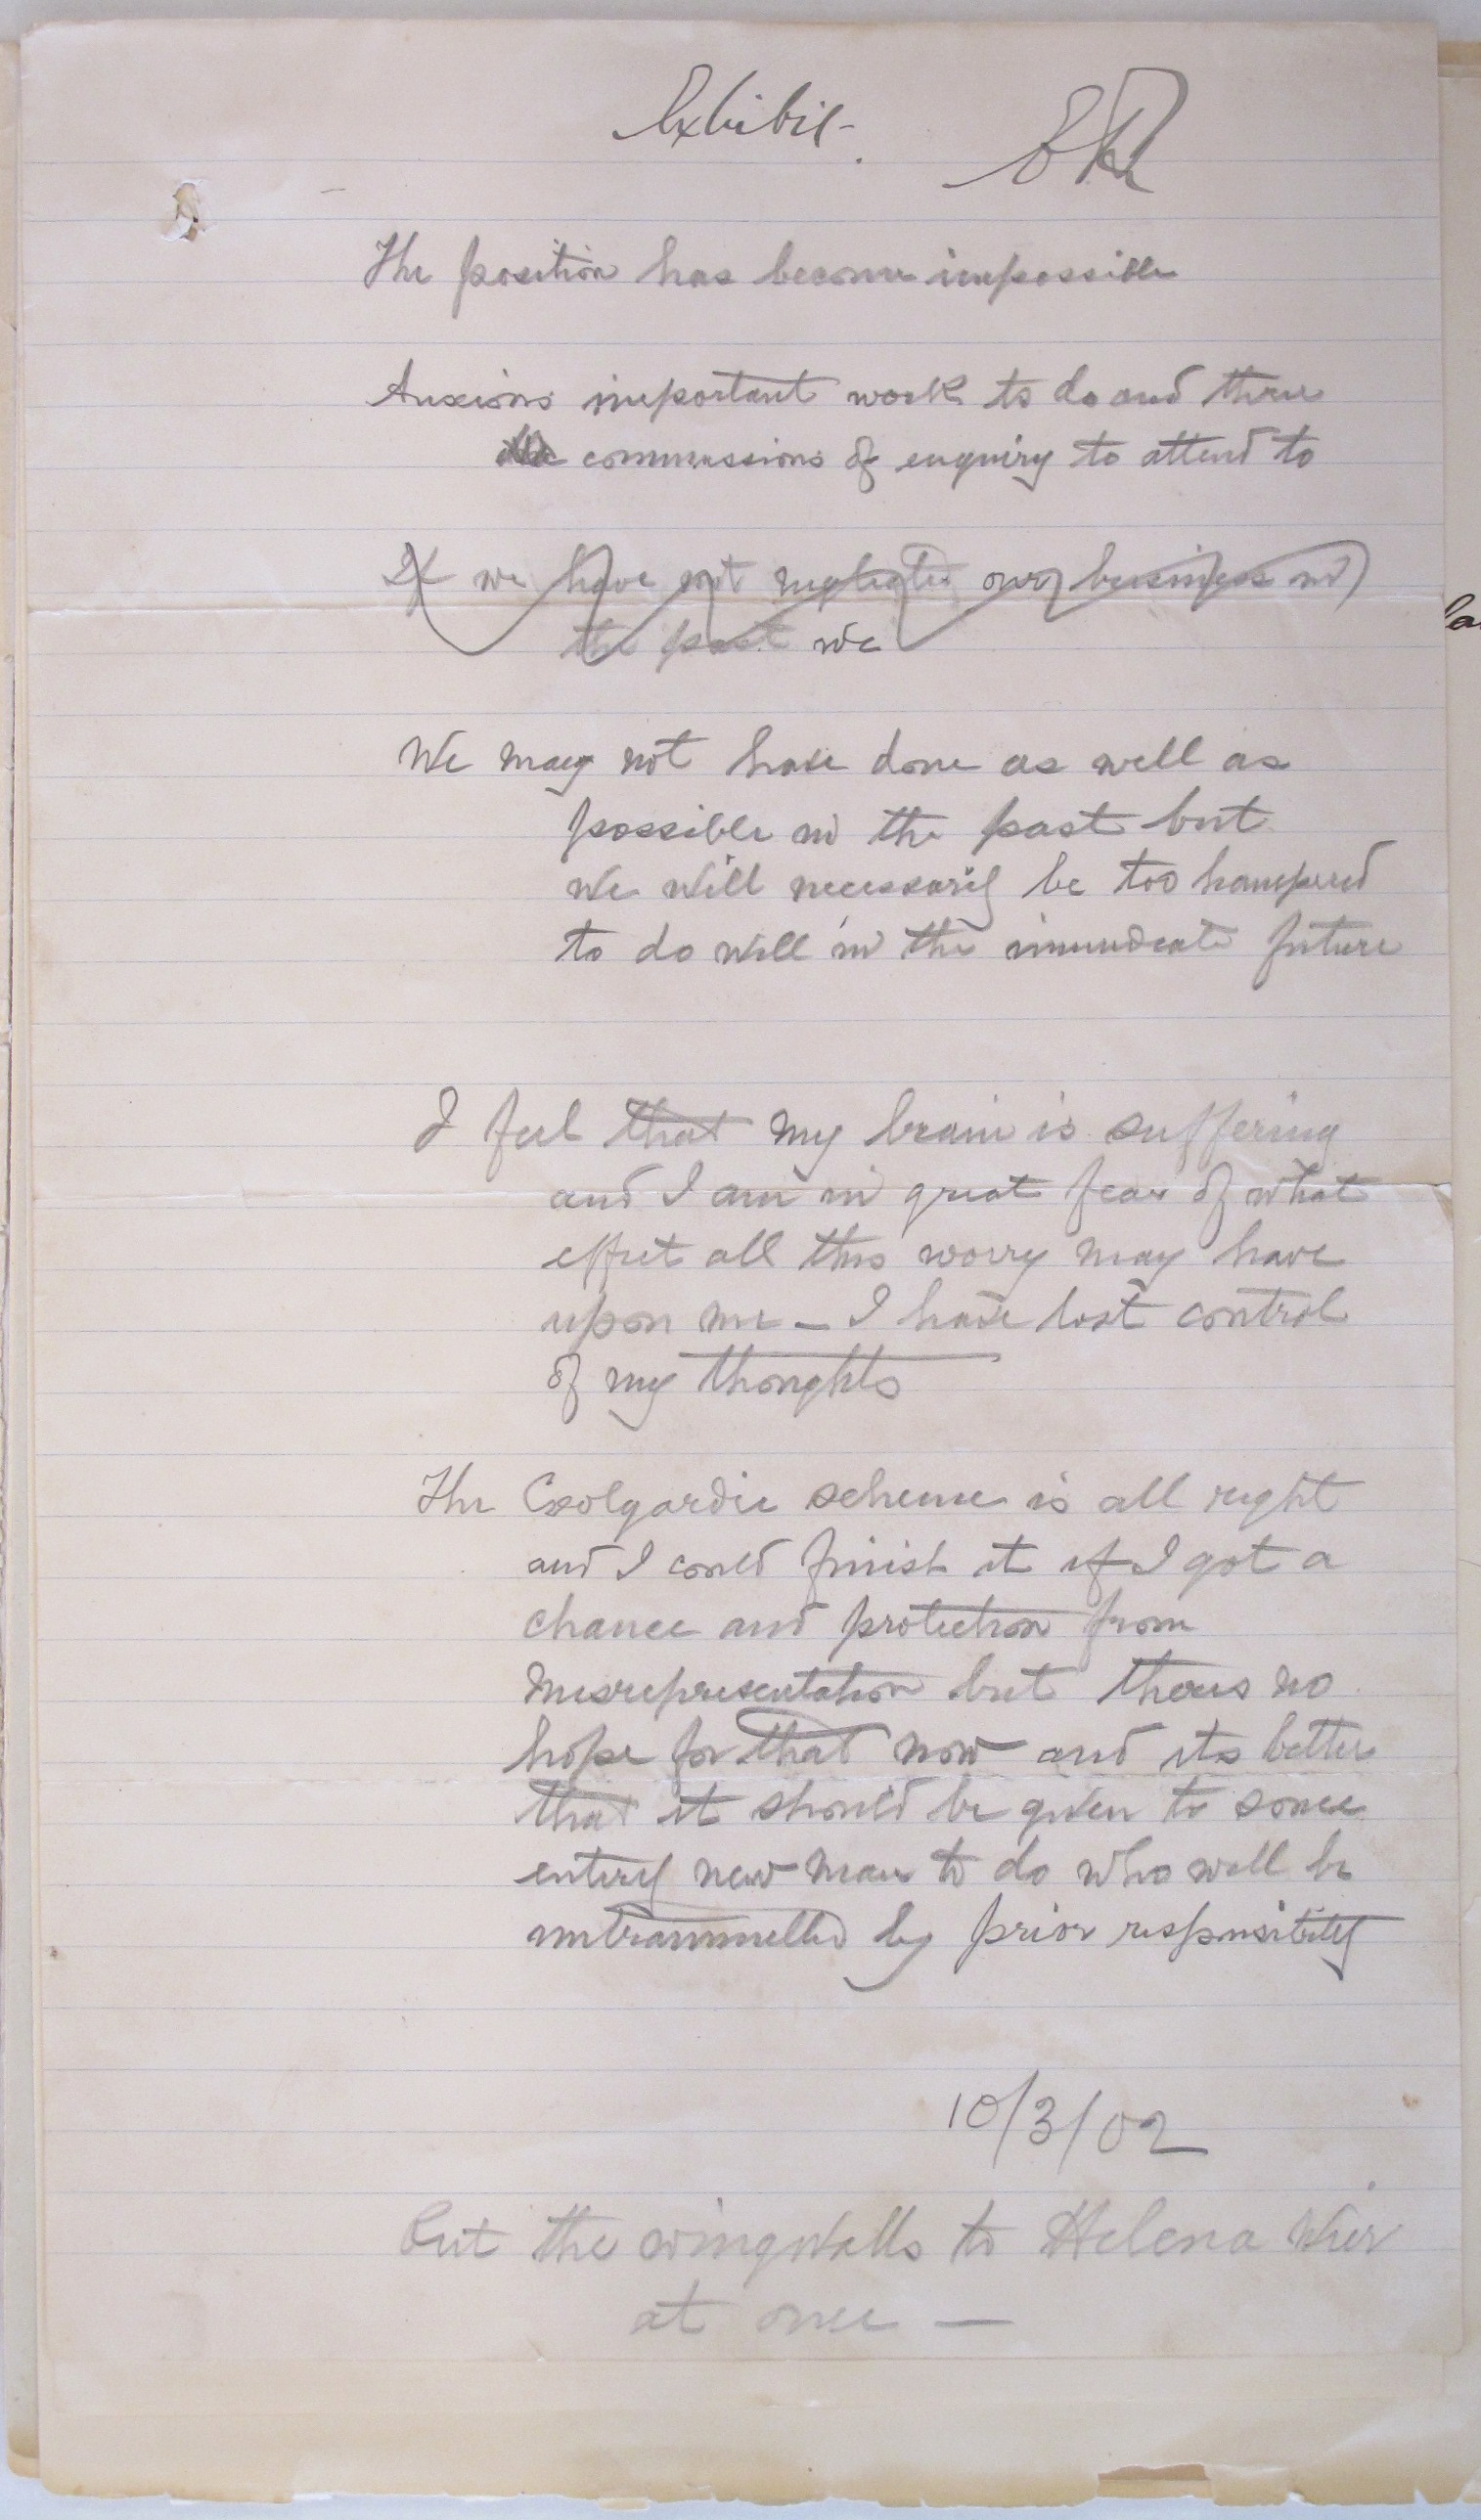 Exhibit.
The position has become impossible
Anxious important work to do and three
commissions of enquiry to attend to
If we have not neglected our business in
the past we
We may not have done as well as
possible in the past but
we will necessarily be too hampered
to do well in the immediate future
I feel that my brain is suffering
and I am in great fear of what
effect all this worry may have
upon me – I have lost control
of my thoughts
The Coolgardie scheme is all right
and I could finish it if I got a
chance and protection from
misrepresentation but theres no
hope for that now and its better
that it should be given to some
entirely new man to do who will be
untrammelled by prior responsibility
10/3/02
Put the wingwalls to Helena Wier
at once –